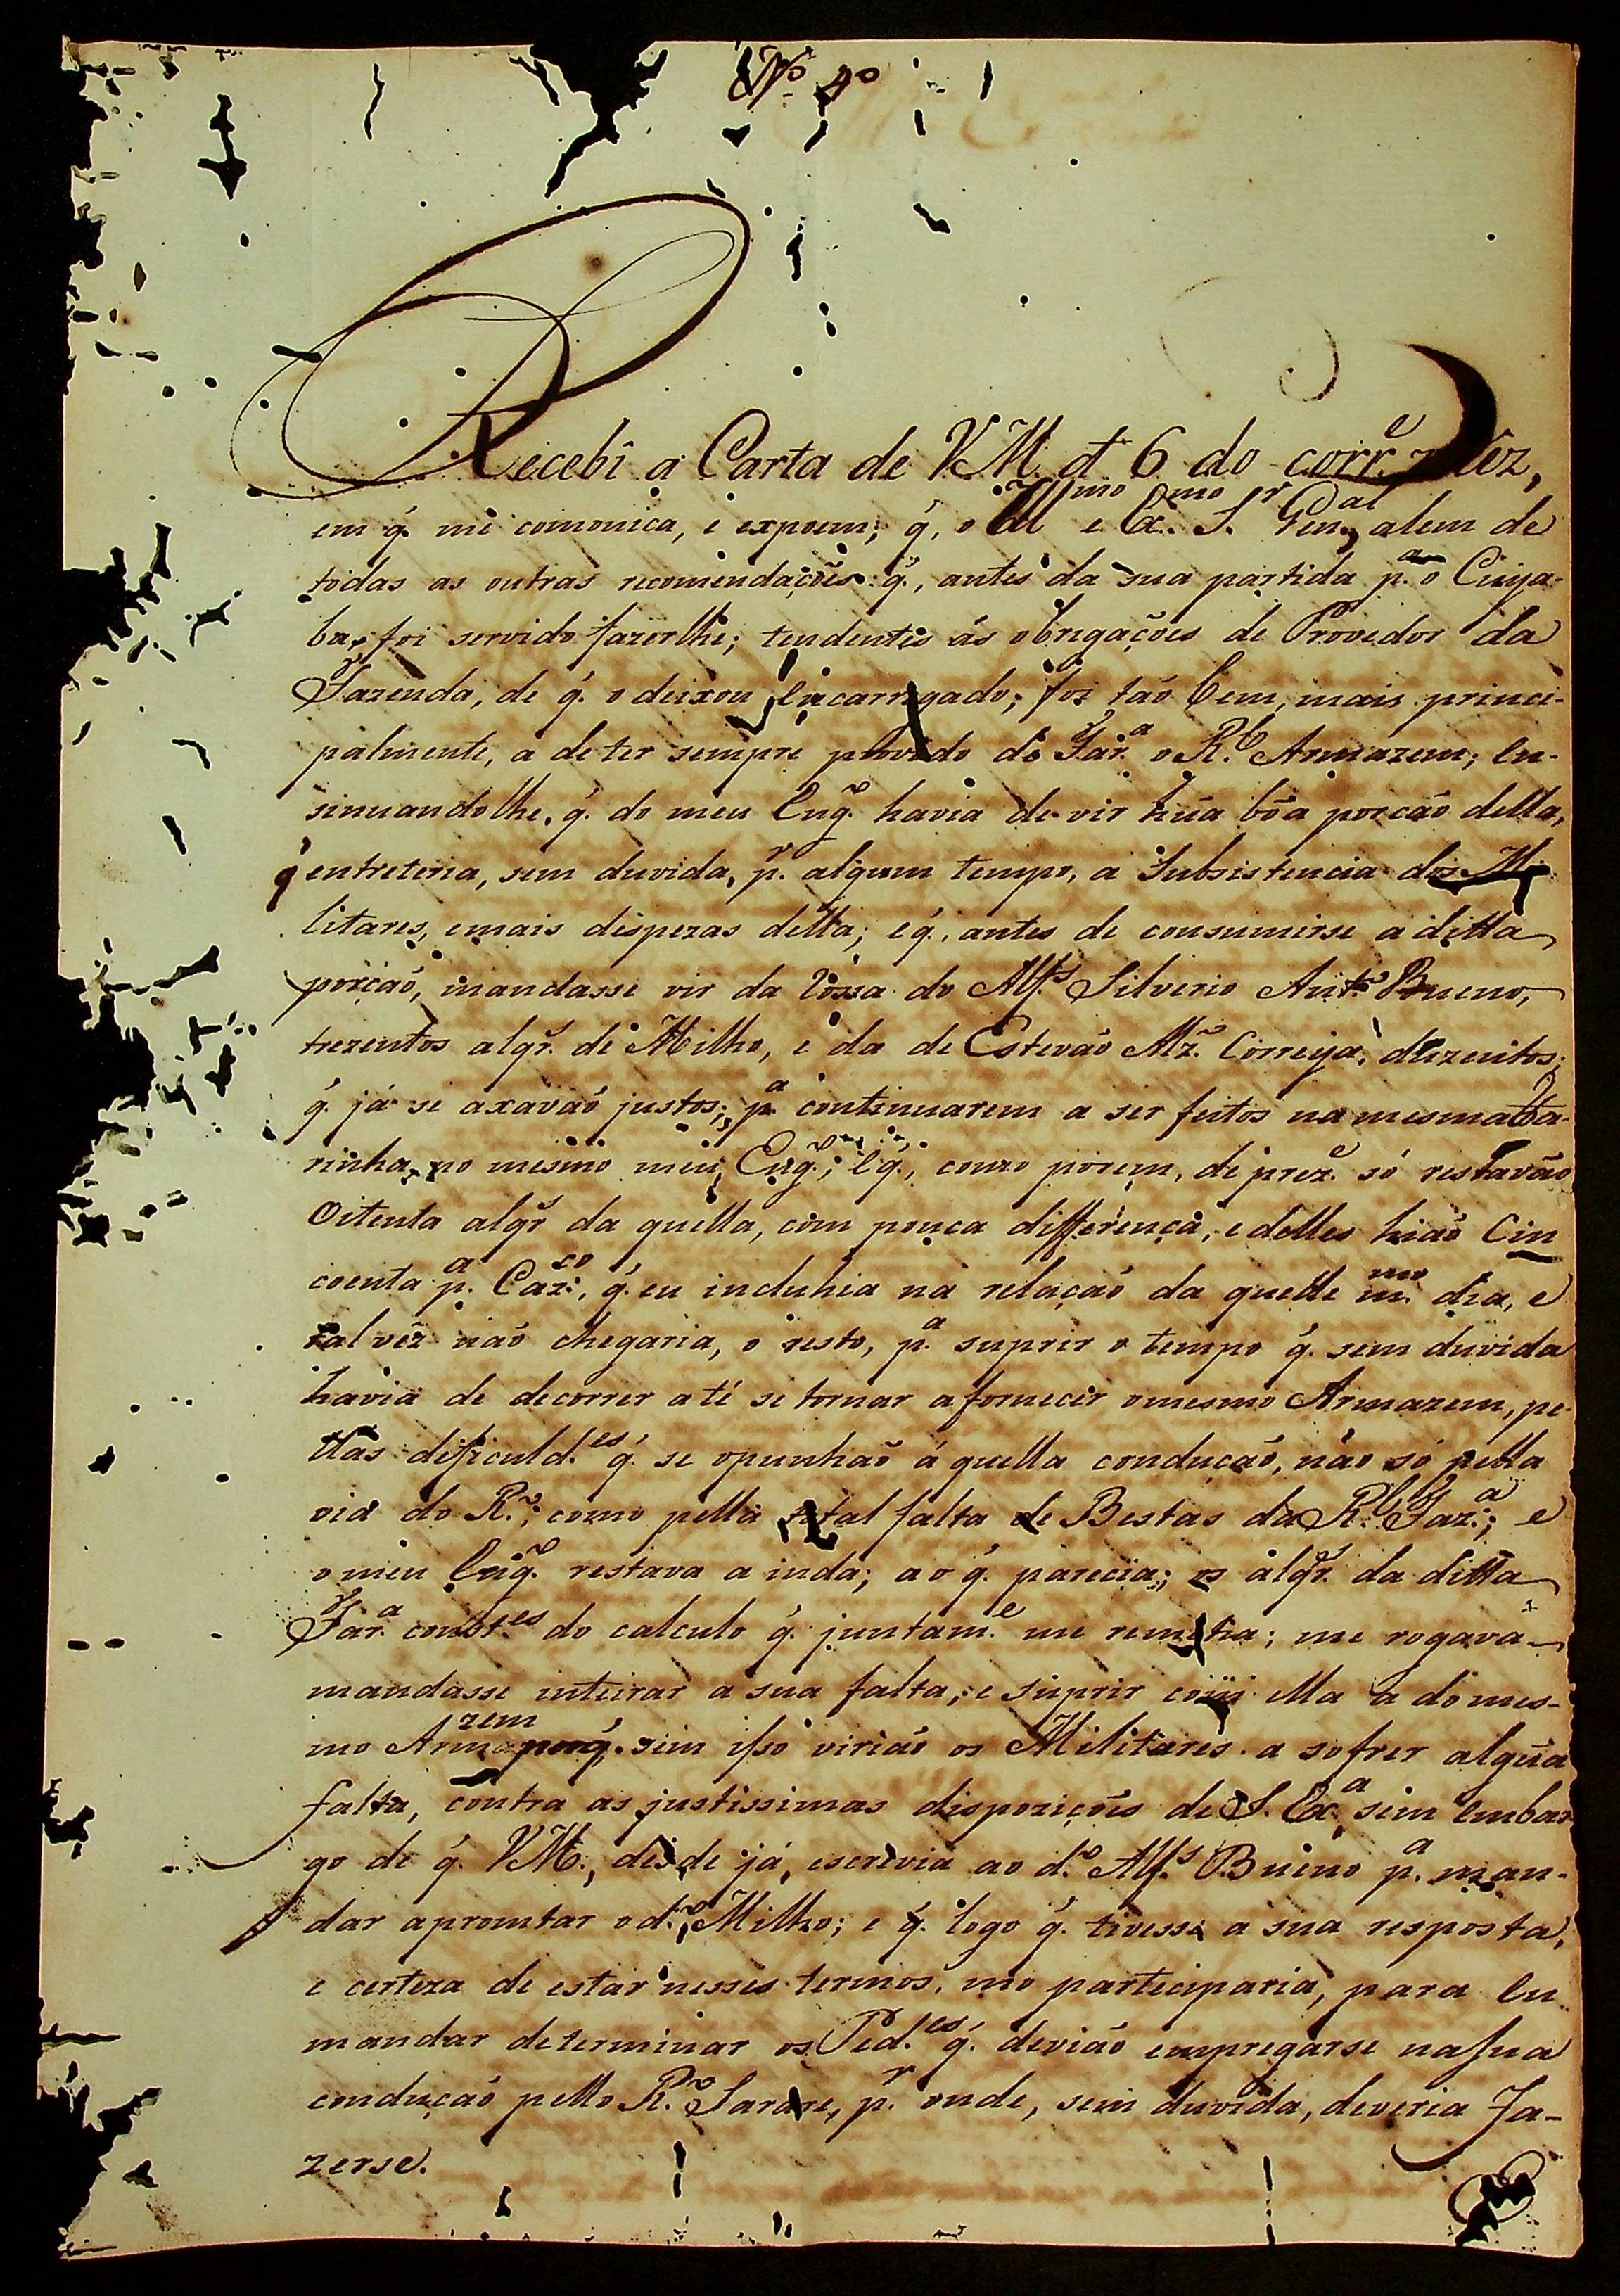 Nº 4º
Recebî a Carta de VM. de 6 do corr.e Mez,
em q̃. me comonica, e expoem; q̃, o Illmo e Exmo. Sr. Gen.al, alem de
todas as outras recomendações q̃., antes da sua partida p.a o Cuya-
ba, foi servido fazerlhe; tendentes ás obrigações de Provedor da
Fazenda, de q̃. o deixou Encarregado; foi tão bem, mais princi-
palmente, a de ter sempre provido de Far.a o R.l Armazem; En-
sinuandolhe, q̃. do meu Eng.o havia de vir hũa bõa porção della,
q̃ entreteria, sem duvida, p.r algum tempo, a Subsistencia dos Mi-
litares, e mais dispezas della; e q̃., antes de consumirse a ditta
porção, mandasse vir da Rossa do Alf.s Silverio Ant.o Bueno,
trezentos alqr.s de Milho, e da de Estevão Mz̃. Correya, duzentos;
q̃. já se axavão justos; p.a continuarem a ser feitos na mesma Fa-
rinha, no mesmo meu Eng.o; e q̃., como porem, de prez.e só restavão
Oitenta alqr.s da quella, com pouca differença, e delles hiaõ Cin
coenta p.a Caz.co, q̃. eu incluhia na relação da quelle m.mo dia, e
talvêz não chegaria, o resto, p.a suprir o tempo q̃. sem duvida
havia de decorrer a té se tornar a fornecer o mesmo Armazem, pe-
llas dificuld.es q̃. se opunhão á quella condução, não só pella
via do R.o; como pella total falta de Bestas da R.l Faz.a; e
o meu Eng.o restava a inda; ao q̃. parecia; os alqr.s da ditta
Far.a const.es do calculo q̃. juntam.e me remetia; me rogava
mandasse inteirar a sua falta, e suprir com ella a do mes-
mo Armazem porq̃. sem isso virião os Militares a sofrer algũa
falta, contra as justissimas dispozições de S. Ex.a sem embar
go de q̃. VM., desde já, escrevia ao d.o Alf.s Bueno p.a man-
dar apromtar o d.o Milho; e q̃. logo q̃. tivesse a sua resposta,
e certeza de estar nesses termos, mo participaria, para Eu
mandar determinar os Ped.es q̃. devião empregarse na sua
condução pello R.o Sarare, p.r onde, sem duvida, deveria Fa-
zerse.